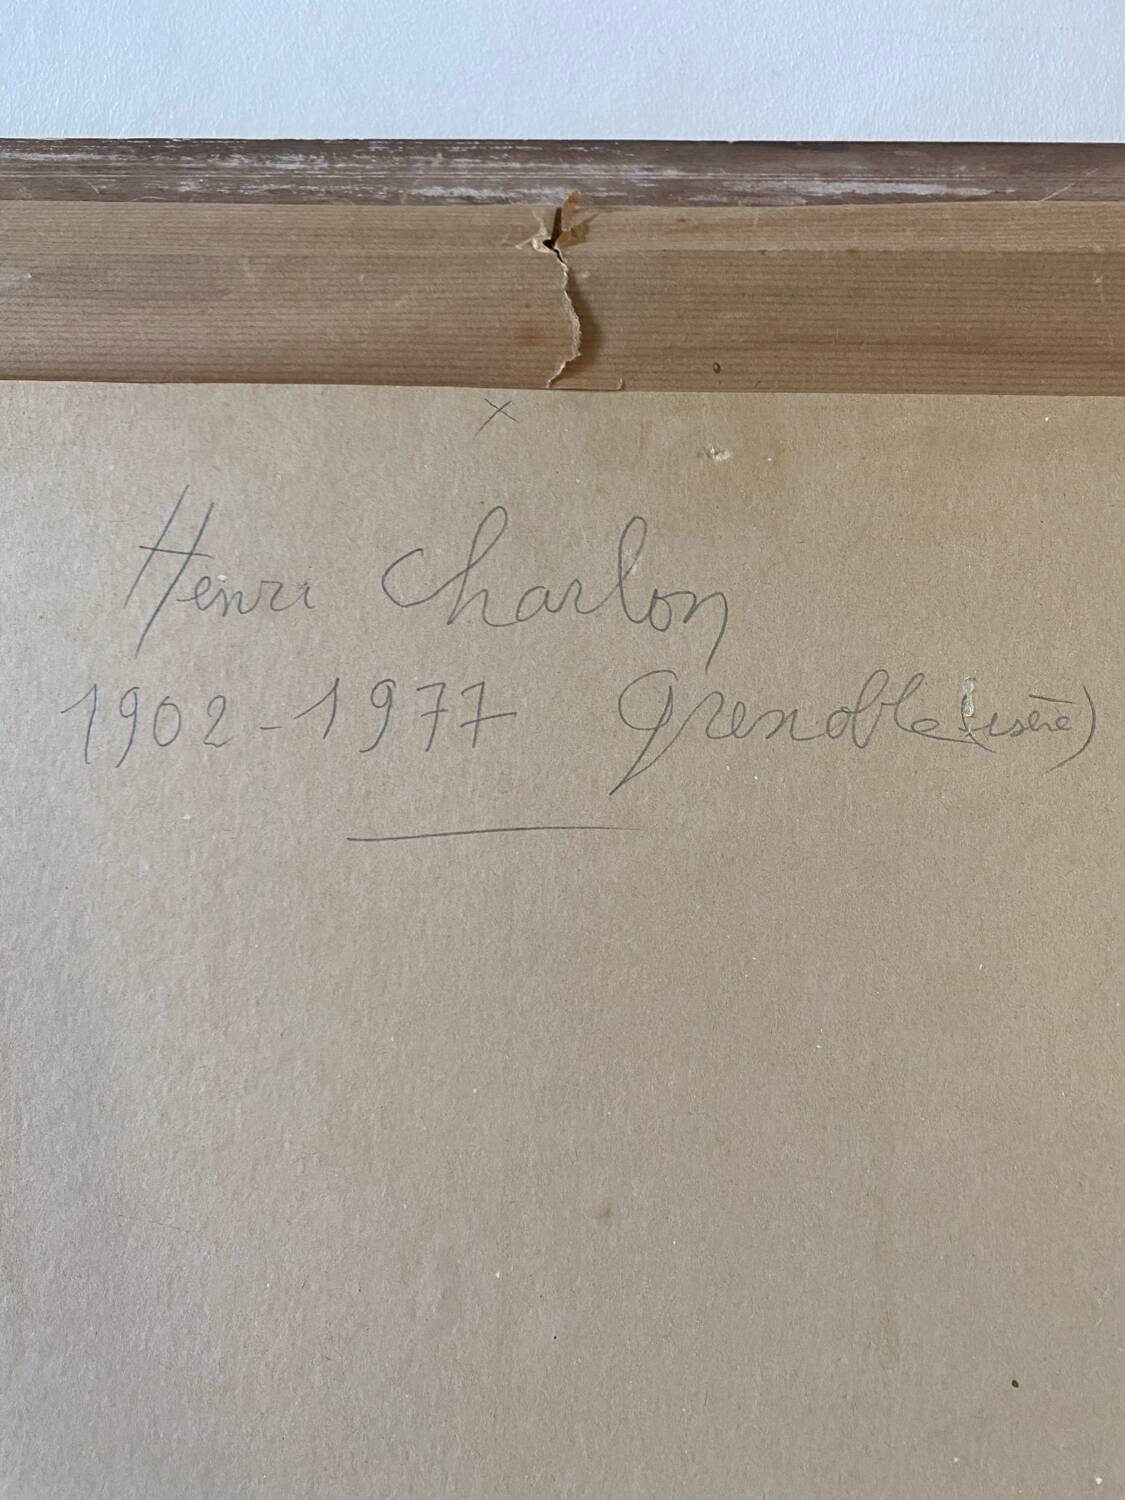 x
Henri Charlon
1902-1977 Grenoble (isère)